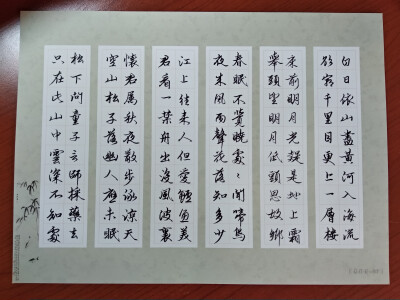 白日依山盡黃河入海流
欲窮千里目更上一層樓
床前明月光疑是地上霜
舉頭望明月低頭思故鄉
春眠不覺曉處處聞啼鳥
夜來風雨聲花落知多少
江上往來人但愛鱸魚美
君看一葉舟出沒風波裏
懷君屬秋夜散步詠涼天
空山松子落幽人應未眠
松下問童子言師採藥去
只在此山中雲深不知處